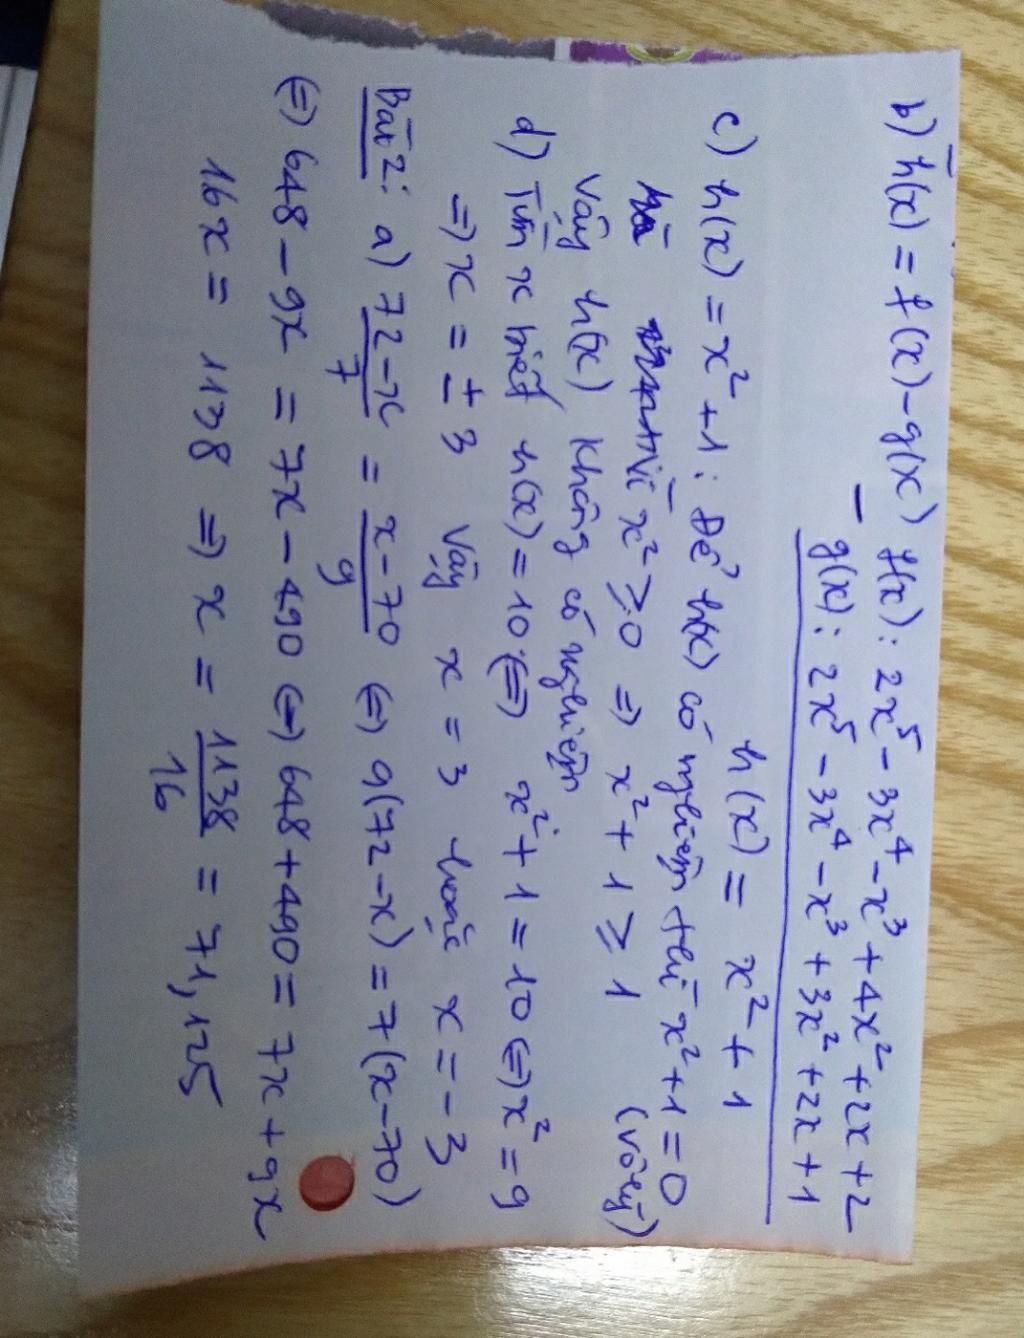 b) h(x) = f(x) - g(x) f(x): 2x⁵ - 3x⁴ - x³ + 4x² + 2x + 2
- g(x): 2x⁵ - 3x⁴ - x³ + 3x² + 2x + 1
h(x) = x² + 1
c) h(x) = x² + 1: Để h(x) có nghiệm thì x² + 1 = 0
mà vì x² ≥ 0 => x² + 1 ≥ 1 (vô lý)
Vậy h(x) không có nghiệm
d) Tìm x biết h(x) = 10 <=> x² + 1 = 10 <=> x² = 9
=> x = ± 3 Vậy x = 3 hoặc x = -3
Bài 2: a) 72-x/7 = x-70/9 <=> 9(72-x) = 7(x-70)
<=> 648 - 9x = 7x - 490 <=> 648 + 490 = 7x + 9x
16x = 1138 => x = 1138/16 = 71,125